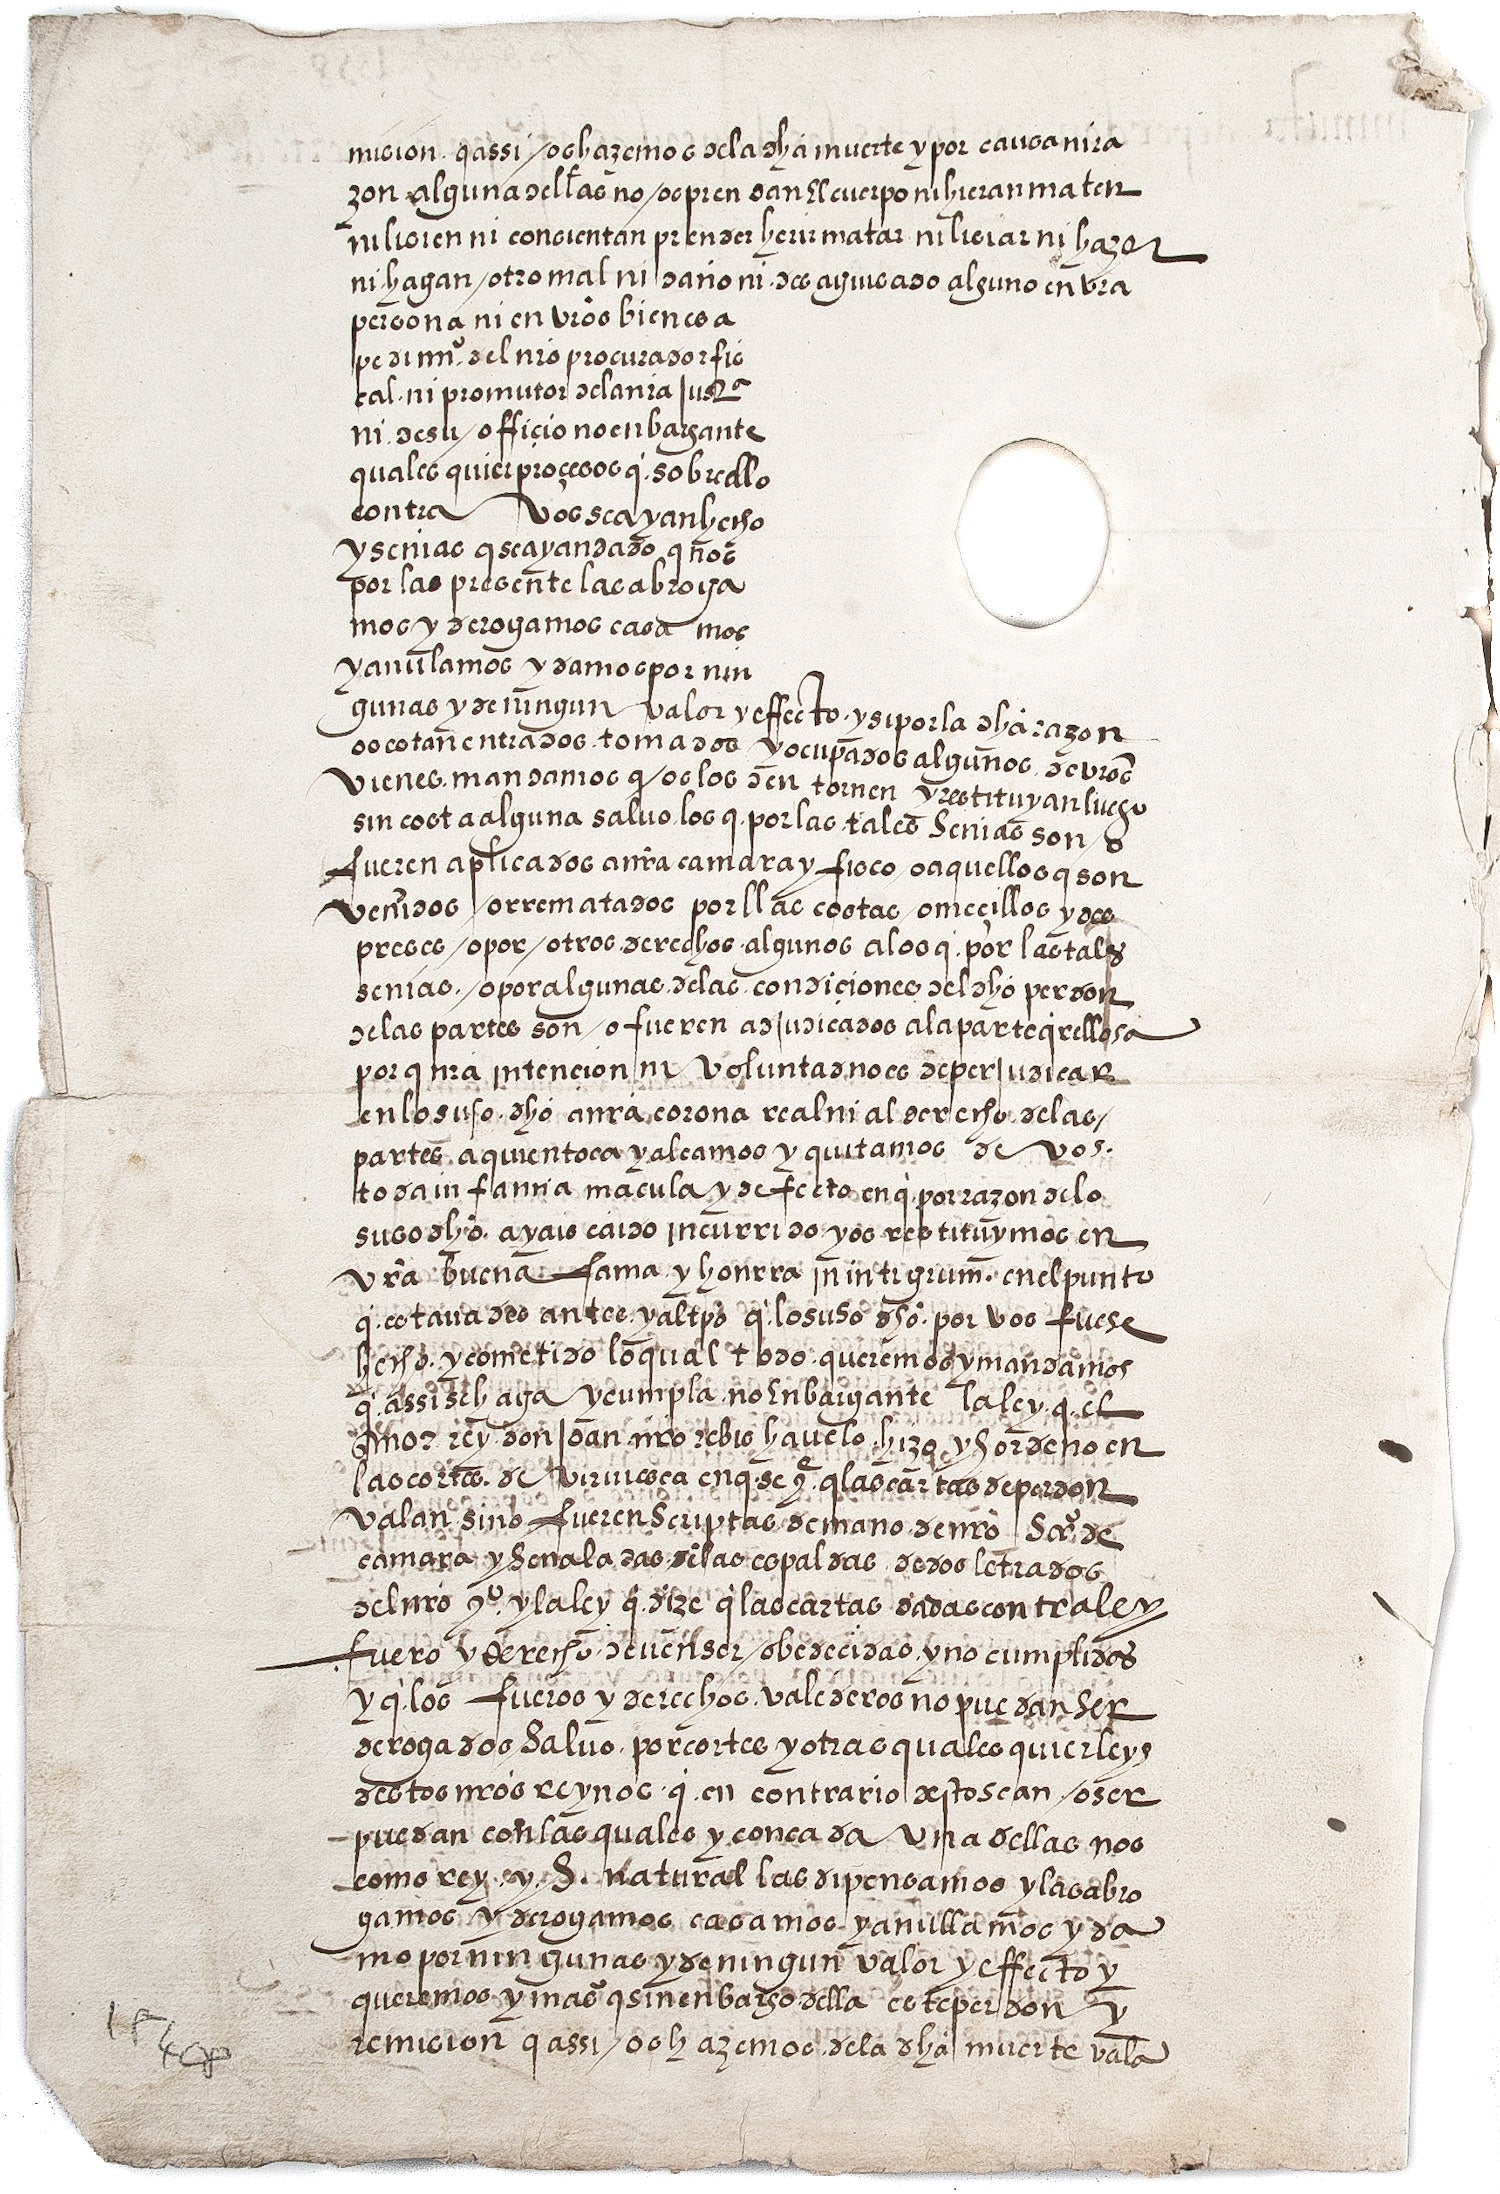 mision q assi / os hazemos dela dha muerte y por causa ni ra
zon alguna dellas no / os prendan El cuerpo ni hieran maten
ni lisien ni consientan prender herir matar ni lisiar ni hazer
ni hagan / otro mal ni daño ni desaguisado alguno en vra
persona ni en vros bienes a
pedimio del nro procurador fis
cal ni promutor dela nra Justa
ni de su / officio no enbargante
quales quier proçesos q sobrello
contra vos se ayan hecho
y senias q se ayan dado q nos
por las presente las abroga
mos y derogamos casa mos
y anulamos y damos por nin
gunas y de ningun valor y effecto y si por la dha razon
os estan entrados tomados y ocupados algunos de vros
vienes mandamos q / os los den tornen y restituyan luego
sin costa alguna salvo los q por las tales Senias son / o
fueren aplicados a nra camara y fisco / o aquellos q son
vendidos / o rrematados por llas costas / omecillos y des
preses / o por / otros derechos algunos a los q por las tales
senias / o por algunas delas condiçiones del dho perdon
delas partes son / o fueren adjudicados ala parte qrellosa
por q nra Intencion ni voluntad no es de perJudicar
en lo suso dho a nra corona real ni al derecho delas /
partes a quien toca y alçamos y quitamos de vos
toda infamia macula y defecto en q por razon delo
suso dho ayais caido Incurrido y os restituymos en
vra buena fama y honrra In intrigum en el punto
q estavades antes y al tpo q lo suso dho por vos fuese
hecho y cometido lo qual todo queremos y mandamos
q assi se haga y cumpla no Enbargante la ley q el
senor rey don Joan nro rebis havelo hizo y hordeno en
las cortes de virviesca en q se qe q las cartas de perdon
valan sino fueren Scriptas de mano de nro Scro de
camara y Senaladas de las espaldas de dos letrados
del nro qo y la ley q dize q las cartas dadas contra ley
fuero y derecho deven ser / obedecidas y no cumplidas
y q los fueros y derechos valederos no puedan ser
derogados Salvo por cortes y otras quales quier leys
destos nros reynos q en contrario desto sean / o ser
puedan con las quales y con cada vna dellas nos
como rey y S natural las dipensamos y las abro
gamos y derogamos casamos y anullamos y da
mo por nin gunas y de ningun valor y effecto y
queremos y mao q sin enbargo della este perdon y
remision q assi / os hazemos dela dha muerte vala